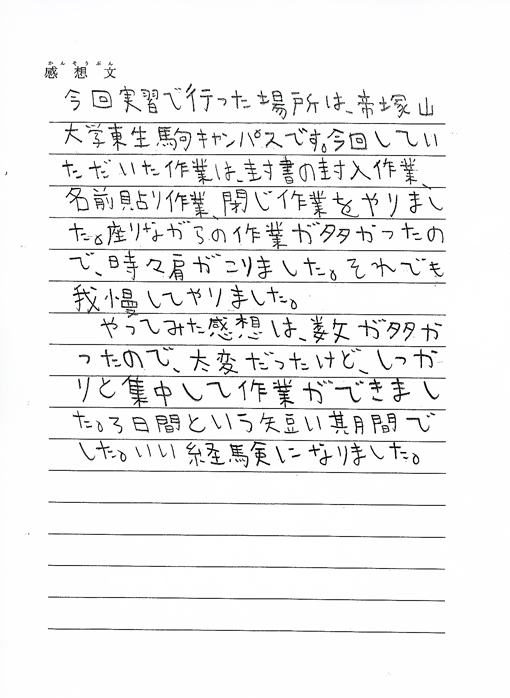 かんそうぶん
感想文
今回実習で行った場所は、帝塚山
大学東生駒キャンパスです。今回してい
ただいた作業は、封書の封入作業、
名前貼り作業、閉じ作業をやりまし
た。座りながらの作業が多かったの
で、時々肩がこりました。それでも
我慢してやりました。
やってみた感想は、数が多か
ったので、大変だったけど、しっか
りと集中して作業ができまし
た。3日間という短い期間で
した。いい経験になりました。